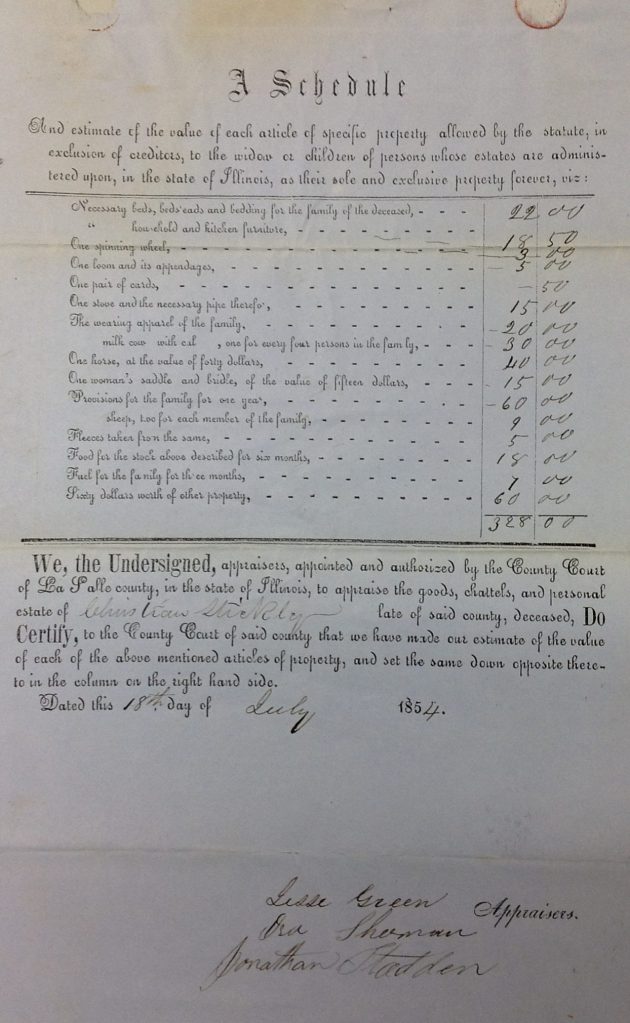 A Schedule
And estimate of the value of each article of specific property allowed by the statute, in
exclusion of creditors, to the widow or children of persons whose estates are adminis-
tered upon, in the state of Illinois, as their sole and exclusive property forever, viz:
Necessary beds, bedsteads and bedding for the family of the deceased, - - - 22 00
" household and kitchen furniture, - - - - - - - - 18 50
One spinning wheel, - - - - - - - - - - - - 3 00
One loom and its appendages, - - - - - - - - - - 5 00
One pair of cards, - - - - - - - - - - - - - 50
One stove and the necessary pipe therefor, - - - - - - - - 15 00
The wearing apparel of the family, - - - - - - - - - 20 00
milk cow with cal , one for every four persons in the family, - - - 30 00
One horse, at the value of forty dollars, - - - - - - - - 40 00
One woman's saddle and bridle, of the value of fifteen dollars, - - - 15 00
Provisions for the family for one year, - - - - - - - - 60 00
sheep, two for each member of the family, - - - - - - 9 00
Fleeces taken from the same, - - - - - - - - - - 5 00
Food for the stock above described for six months, - - - - - - 18 00
Fuel for the family for three months, - - - - - - - - - 7 00
Sixty dollars worth of other property, - - - - - - - - 60 00
328 00
We, the Undersigned, appraisers, appointed and authorized by the County Court
of La Salle county, in the state of Illinois, to appraise the goods, chattels, and personal
estate of Christian Stickley late of said county, deceased, Do
Certify, to the County Court of said county that we have made our estimate of the value
of each of the above mentioned articles of property, and set the same down opposite there-
to in the column on the right hand side.
Dated this 18th day of July 1854.
Jesse Green Appraisers.
Jonathan Stadden